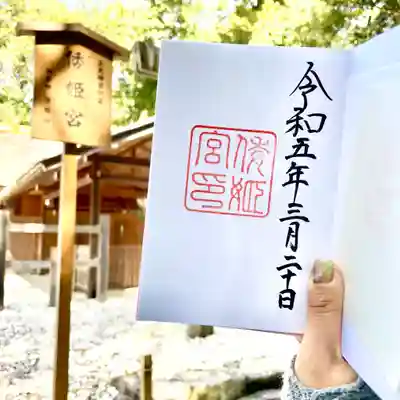 倭姫宮
令和五年三月二十日
倭姫
宮印